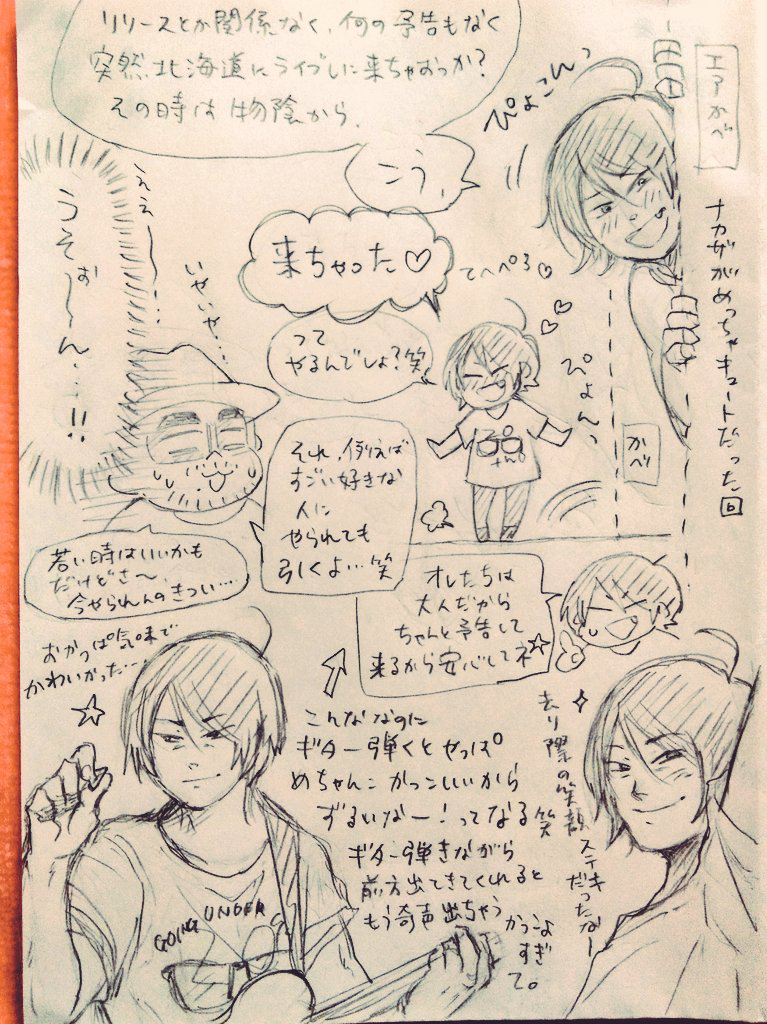 リリースとか関係なく、何の予告もなく
突然北海道にライブしに来ちゃおっか?
その時は物陰から、
こう、
ぴょこんっ
エアかべ
ナカザがめっちゃキュートだった回
来ちゃった♡
てへぺろ♡
って
やるんでしょ?笑
ぴょんっ
かべ
ええー…
うそぉ〜ん…!!
いやいや…
それ、例えば
すごい好きな
人に
やられても
引くよ…笑
若い時はいいかも
だけどさ〜、
今やられんのきつい…
オレたちは
大人だから
ちゃんと予告して
来るから安心してネ☆
おかっぱ気味で
かわいかった…
こんななのに
ギター弾くとやっぱ
めちゃんこかっこいいから
ずるいなー!ってなる笑
ギター弾きながら
前方出てきてくれると
もう奇声出ちゃう
かっこよ
すぎ
て。
去り際の笑顔
ステキ
だったなー
GOING UNDER